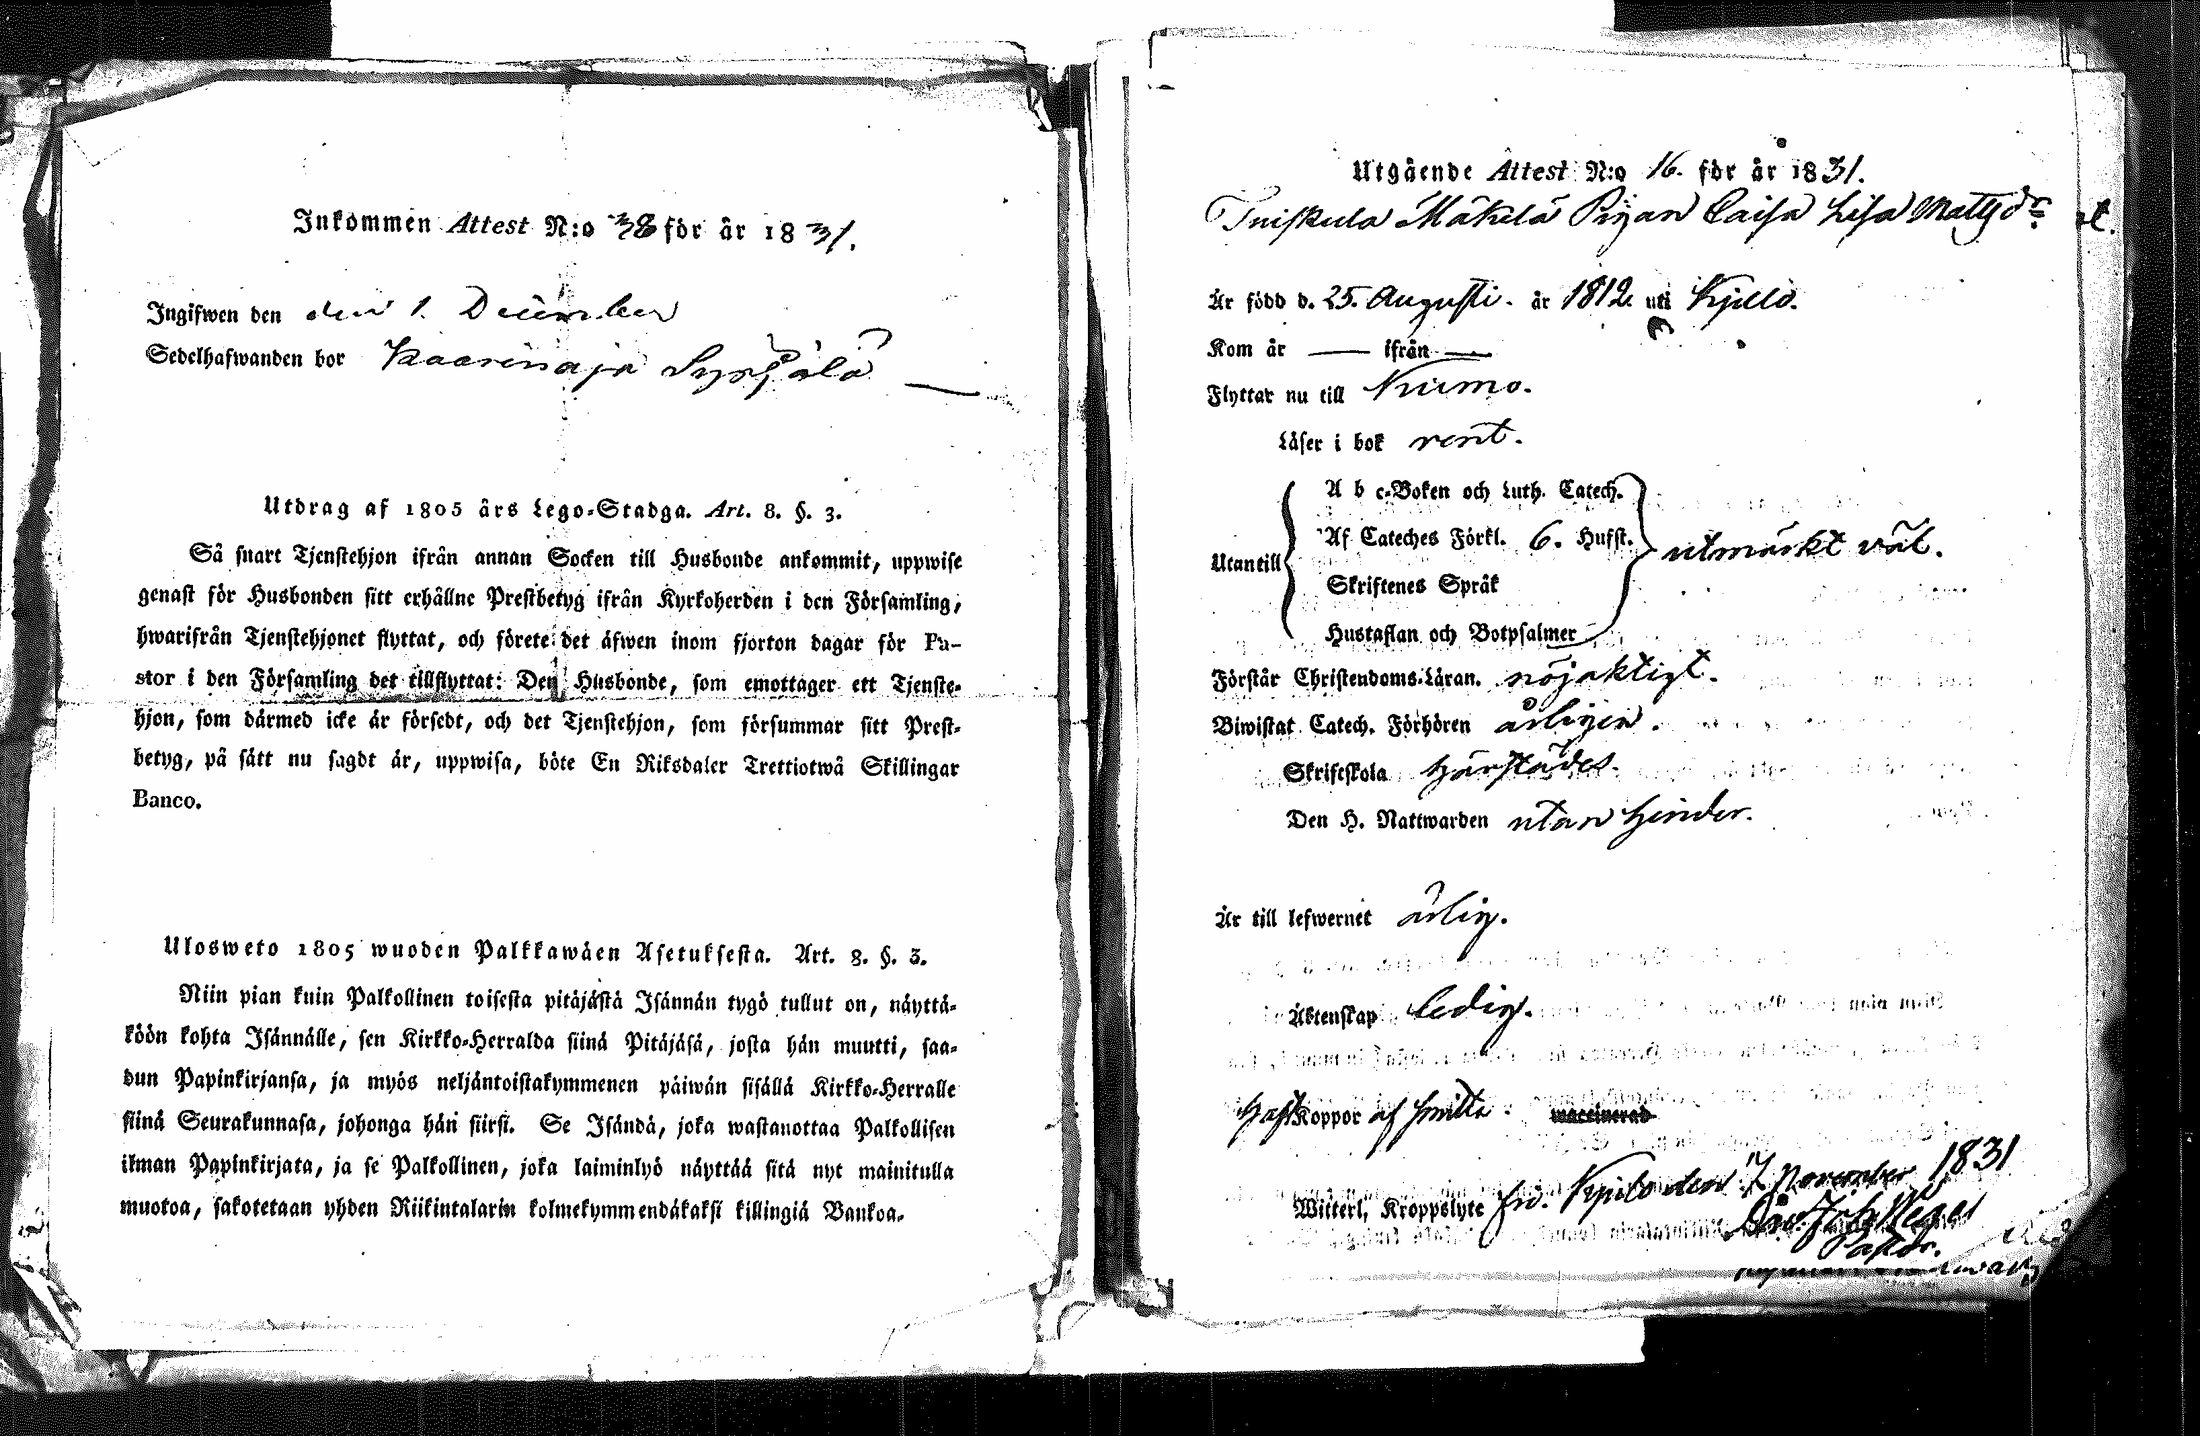 Inkommen Attest N:o 38 för år 1831.
Ingifwen den den 1. December
Sedelhafwanden bor
Utdrag af 1805 års Lego-Stadga. Art. 8. §. 3.
Så snart Tjenstehjon ifrån annan Socken till Husbonde ankommit, uppwise
genast för Husbonden sitt erhållne Prestbetyg ifrån Kyrkoherden i den Församling,
hwarifrån Tjenstehjonet flyttat, och förete det äfwen inom fjorton dagar för Pa-
stor i den Församling det tillflyttat: Den Husbonde, som emottager ett Tjenste-
hjon, som därmed icke är försedt, och det Tjenstehjon, som försummar sitt Prest-
betyg, på sätt nu sagdt är, uppwisa, böte En Riksdaler Trettiotwå Skillingar
Banco.
Ulosweto 1805 wuoden Palkkawäen Asetuksesta. Art. 8. §. 3.
Niin pian kuin Palkollinen toisesta pitäjästä Isännän tygö tullut on, näyttä-
köön kohta Isännälle, sen Kirkko-Herralda siinä Pitäjäsä, josta hän muutti, saa-
dun Papinkirjansa, ja myös neljäntoistakymmenen päiwän sisällä Kirkko-Herralle
siinä Seurakunnasa, johonga hän siirsi. Se Isändä, joka wastanottaa Palkollisen
ilman Papinkirjata, ja se Palkollinen, joka laiminlyö näyttää sitä nyt mainitulla
muotoa, sakotetaan yhden Riikintalarin kolmekymmendäkaksi killingiä Bankoa.
Utgående Attest N:o 16. för år 1831.
Tuiskula Mäkelä Pigan Caisa Lisa Matsdr
Är född d. 25. Augusti. år 1812 uti Kjulo.
Kom år — ifrån —
Flyttar nu till Kumo.
Läser i bok rent.
A b c-Boken och Luth. Catech.
Af Cateches Förkl. 6. Hufst.
Utantill utmärkt väl.
Skriftenes Språk
Hustaflan och Botpsalmer
Förstår Christendoms-Läran. nöjaktigt.
Biwistat Catech. Förhören årligen.
Skriftskola härstädes.
Den H. Nattwarden utan hinder.
Är till lefwernet ärlig.
Äktenskap ledig.
Haft Koppor af smitta. waccinerad
Witterl. Kroppslyte fri. Kjulo den 7 November 1831
Pastor.